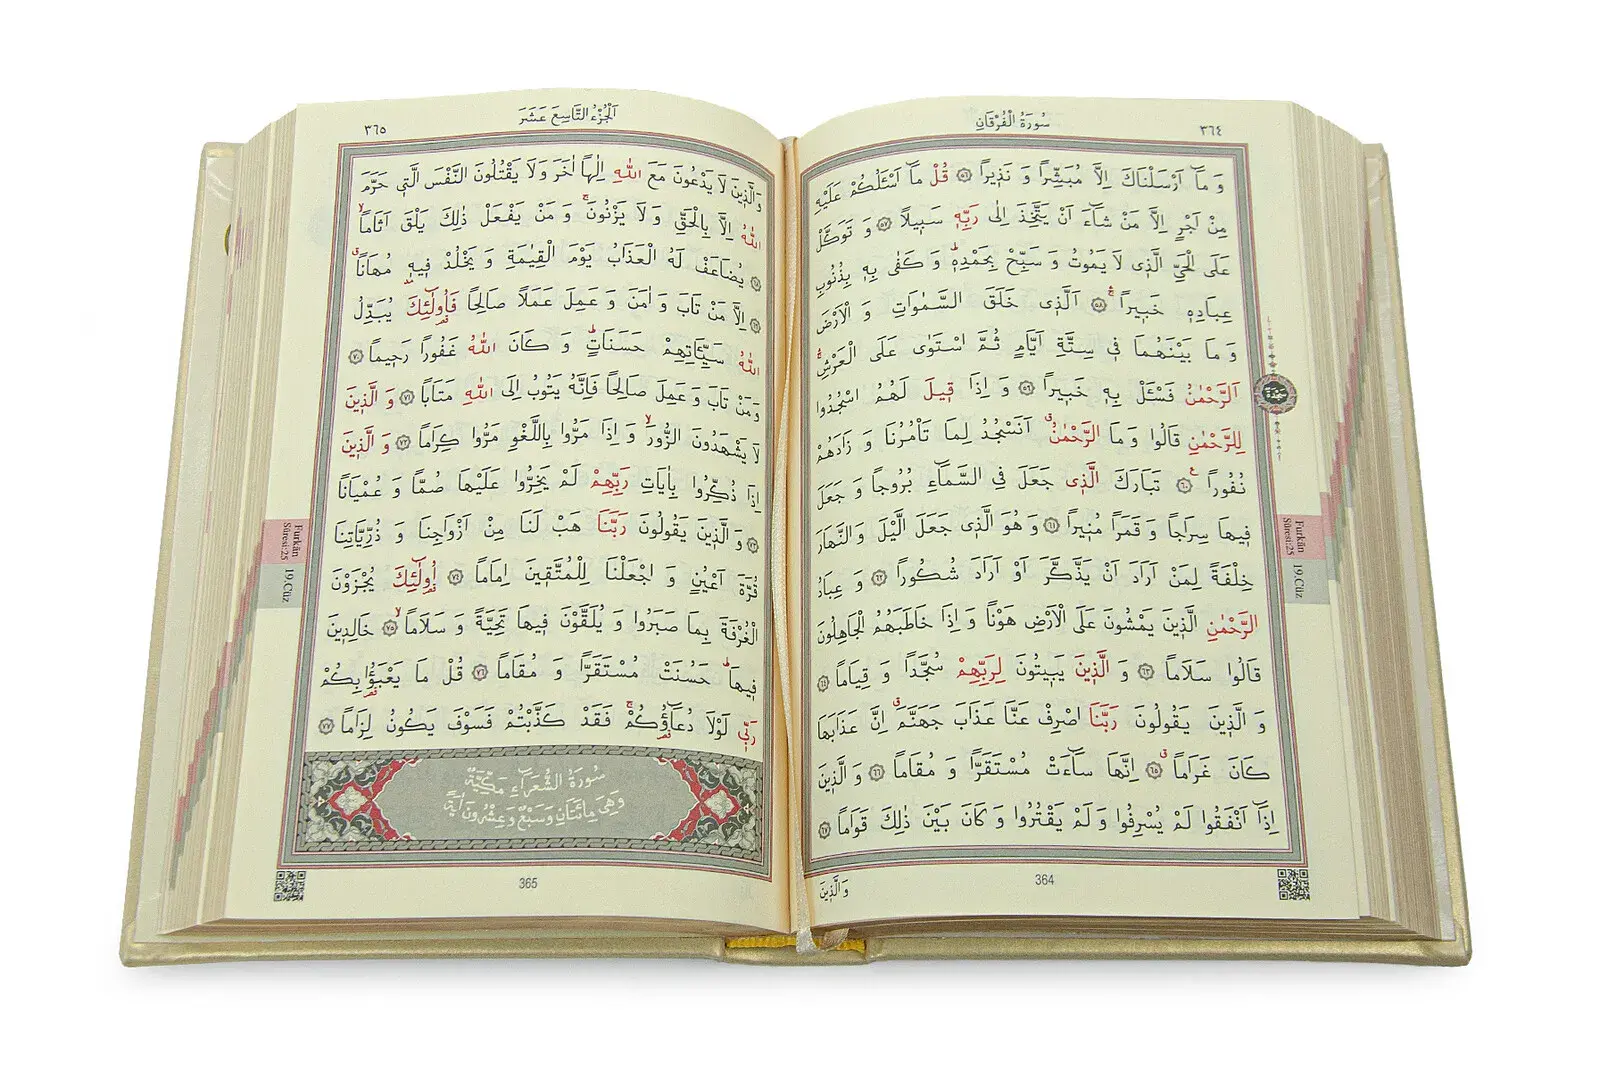 سُورَةُ الْفُرْقَانِ
٣٦٤
وَ مَآ اَرْسَلْنَاكَ اِلَّا مُبَشِّرًا وَ نَذ۪يرًا ﴿٥٦﴾ قُلْ مَآ اَسْـَٔلُكُمْ عَلَيْهِ
مِنْ اَجْرٍ اِلَّا مَنْ شَآءَ اَنْ يَتَّخِذَ اِلٰى رَبِّه۪ سَب۪يلًا ﴿٥٧﴾ وَ تَوَكَّلْ
عَلَى الْحَيِّ الَّذ۪ى لَا يَمُوتُ وَ سَبِّحْ بِحَمْدِه۪ۜ وَ كَفٰى بِه۪ بِذُنُوبِ
عِبَادِه۪ خَب۪يرًاۚ ﴿٥٨﴾ اَلَّذ۪ى خَلَقَ السَّمٰوَاتِ وَ الْاَرْضَ
وَ مَا بَيْنَهُمَا ف۪ى سِتَّةِ اَيَّامٍ ثُمَّ اسْتَوٰى عَلَى الْعَرْشِۚ
اَلرَّحْمٰنُ فَسْـَٔلْ بِه۪ خَب۪يرًا ﴿٥٩﴾ وَ اِذَا ق۪يلَ لَهُمُ اسْجُدُوا
لِلرَّحْمٰنِ قَالُوا وَ مَا الرَّحْمٰنُۗ اَنَسْجُدُ لِمَا تَاْمُرُنَا وَ زَادَهُمْ
نُفُورًا ﴿٦٠﴾ تَبَارَكَ الَّذ۪ى جَعَلَ فِى السَّمَآءِ بُرُوجًا وَ جَعَلَ
ف۪يهَا سِرَاجًا وَ قَمَرًا مُن۪يرًا ﴿٦١﴾ وَ هُوَ الَّذ۪ى جَعَلَ الَّيْلَ وَ النَّهَارَ
خِلْفَةً لِمَنْ اَرَادَ اَنْ يَذَّكَّرَ اَوْ اَرَادَ شُكُورًا ﴿٦٢﴾ وَ عِبَادُ
الرَّحْمٰنِ الَّذ۪ينَ يَمْشُونَ عَلَى الْاَرْضِ هَوْنًا وَ اِذَا خَاطَبَهُمُ الْجَاهِلُونَ
قَالُوا سَلَامًا ﴿٦٣﴾ وَ الَّذ۪ينَ يَب۪يتُونَ لِرَبِّهِمْ سُجَّدًا وَ قِيَامًا ﴿٦٤﴾
وَ الَّذ۪ينَ يَقُولُونَ رَبَّنَا اصْرِفْ عَنَّا عَذَابَ جَهَنَّمَۗ اِنَّ عَذَابَهَا
كَانَ غَرَامًاۗ ﴿٦٥﴾ اِنَّهَا سَآءَتْ مُسْتَقَرًّا وَ مُقَامًا ﴿٦٦﴾ وَ الَّذ۪ينَ
اِذَآ اَنْفَقُوا لَمْ يُسْرِفُوا وَ لَمْ يَقْتُرُوا وَ كَانَ بَيْنَ ذٰلِكَ قَوَامًا ﴿٦٧﴾
سَجْدَة
Furkân
Sûresi:25
19.Cüz
364
وَ الَّذ۪ينَ
اَلْجُزْءُ التَّاسِعَ عَشَرَ
٣٦٥
وَ الَّذ۪ينَ لَا يَدْعُونَ مَعَ اللّٰهِ اِلٰهًا اٰخَرَ وَ لَا يَقْتُلُونَ النَّفْسَ الَّت۪ى حَرَّمَ
اللّٰهُ اِلَّا بِالْحَقِّ وَ لَا يَزْنُونَۚ وَ مَنْ يَفْعَلْ ذٰلِكَ يَلْقَ اَثَامًاۙ
﴿٦٨﴾ يُضَاعَفْ لَهُ الْعَذَابُ يَوْمَ الْقِيٰمَةِ وَ يَخْلُدْ ف۪يه۪ مُهَانًاۗ
﴿٦٩﴾ اِلَّا مَنْ تَابَ وَ اٰمَنَ وَ عَمِلَ عَمَلًا صَالِحًا فَاُو۬لٰٓئِكَ يُبَدِّلُ
اللّٰهُ سَيِّـَٔاتِهِمْ حَسَنَاتٍۜ وَ كَانَ اللّٰهُ غَفُورًا رَح۪يمًا ﴿٧٠﴾
وَ مَنْ تَابَ وَ عَمِلَ صَالِحًا فَاِنَّهُ يَتُوبُ اِلَى اللّٰهِ مَتَابًا ﴿٧١﴾ وَ الَّذ۪ينَ
لَا يَشْهَدُونَ الزُّورَۙ وَ اِذَا مَرُّوا بِاللَّغْوِ مَرُّوا كِرَامًا ﴿٧٢﴾ وَ الَّذ۪ينَ
اِذَا ذُكِّرُوا بِاٰيَاتِ رَبِّهِمْ لَمْ يَخِرُّوا عَلَيْهَا صُمًّا وَ عُمْيَانًا
﴿٧٣﴾ وَ الَّذ۪ينَ يَقُولُونَ رَبَّنَا هَبْ لَنَا مِنْ اَزْوَاجِنَا وَ ذُرِّيَّاتِنَا
قُرَّةَ اَعْيُنٍ وَ اجْعَلْنَا لِلْمُتَّق۪ينَ اِمَامًا ﴿٧٤﴾ اُو۬لٰٓئِكَ يُجْزَوْنَ
الْغُرْفَةَ بِمَا صَبَرُوا وَ يُلَقَّوْنَ ف۪يهَا تَحِيَّةً وَ سَلَامًاۙ ﴿٧٥﴾ خَالِد۪ينَ
ف۪يهَاۜ حَسُنَتْ مُسْتَقَرًّا وَ مُقَامًا ﴿٧٦﴾ قُلْ مَا يَعْبَؤُ۬ا بِكُمْ
رَبّ۪ى لَوْلَا دُعَآؤُ۬كُمْۚ فَقَدْ كَذَّبْتُمْ فَسَوْفَ يَكُونُ لِزَامًا ﴿٧٧﴾
سُورَةُ الشُّعَرَاءِ مَكِّيَّةٌ
وَهِىَ مِائَتَانِ وَسَبْعٌ وَعِشْرُونَ اٰيَةً
Furkân
Sûresi:25
19.Cüz
365